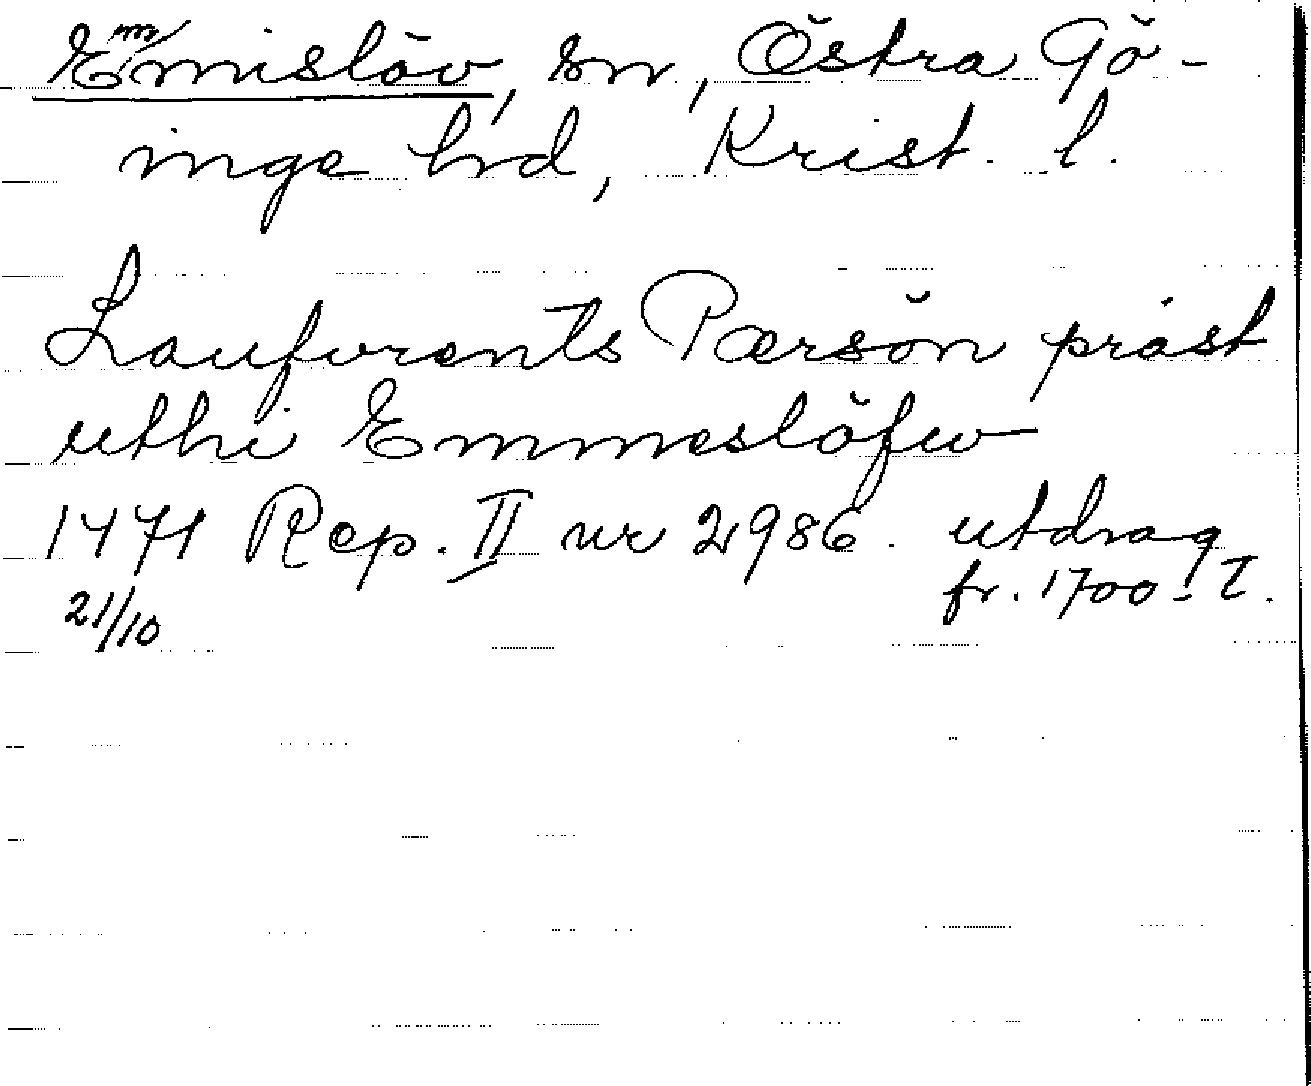 Emmislöv, sn, Östra Gö-
inge hd, Krist. l.
Laufvrents Pærsön präst
uthi Emmeslöfw
1471 Rep. II nr 2986. utdrag
21/10 fr. 1700-t.